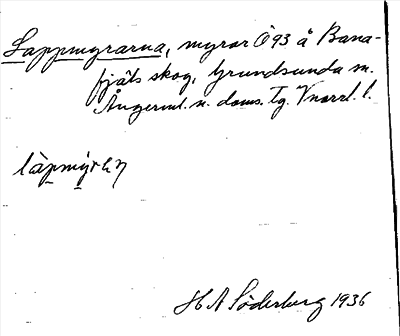 Lappmyrarna, myrar Ö 93 å Bana-
fjäls skog, Grundsunda sn.
Ångerml. n. doms. Tg. Vnorrl. l.
làpmỳrhꞃ
H A Söderberg 1936